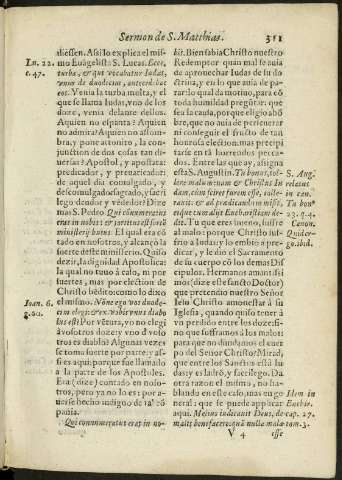 Sermon de S. Matthias. 311
aliessen. Assi lo explica el mis-
mo Euãgelista S. Lucas. Ecce,
turba, & qui vocabatur Iudas,
vnus de duodecim, antecedebat
eos. Venia la turba mesta, y el
que se llama Iudas, vno de los
doze, venia delante dellos.
Aquien no espanta? Aquien
no admira? Aquien no assom-
bra, y pone atonito, la con-
junction de dos cosas tan di-
uersas? Apostol, y apostata:
predicador, y preuaricador:
de aquel dia comulgado, y
descomulgado sagrado, y sacri
lego deudor y vẽdedor? Dize
mas S. Pedro Qui connumeratus
erat in nobis: & sortitus est sortẽ
ministerij huius. El qual era cõ
tado en nosotros, y alcançò la
suerte deste ministerio. Quiso
dezir, la dignidad Apostolica:
la qual no tuuo à caso, ni por
suertes, mas por election de
Christo bẽdito como lo dixo
el mismo. Nõne ego vos duode-
cim elegi: & ex vobis vnus diabo
lus est? Por vẽtura, yo no elegi
à vosotros doze: y vno d'voso
tros es diablo? Algunas vezes
se toma suerte por parte: y as-
si es aqui: porque fue llamado
a la parte de los Apostoles.
Era (dize) contado en noso-
tros, pero ya no lo es: por a-
uerse hecho indigno de tal cõ
pañia.
Qui connumeratus erat in no-
Lu. 22.
c. 47.
Ioan. 6.
g. 60.
bis. Bien sabia Christo nuestro
Redemptor quan mal se auia
de aprouechar Iudas de su do
ctrina, y en lo que auia de pa-
rar: lo qual da motiuo, para cõ
toda humildad pregũtar: que
sea la causa, porque eligio abõ
bre, que no auia de perseuerar
ni conseguir el fructo de tan
honrosa election, mas precipi
tarse en tã horrendos pecca-
dos. Entre las que ay, assigna
esta S. Augustin. Tu bonus, tole-
ra malum: nam & Christus In
dam, cùm sciret furem esse, tolle-
rauit: & ad prædicandum misit,
eique cum alijs Eucharistiam de-
dit. Tu que eres bueno, suffre
al malo: porque Christo suf-
frio a Iudas: y lo embiò a pre-
dicar; y le dio el Sacramento
de su cuerpo cõ los demas Dis
cipulos. Hermanos amantissi
mos (dize este sancto Doctor)
que pretendio nuestro Señor
Iesu Christo amonestar à su
Iglesia, quando quiso tener à
vn perdido entre los doze: si-
no que suframos à los malos:
para que no diuidamos el cuer
po del Señor Christo? Mirad,
que entre los Sanctos està Iu
das: y es ladrõ, y sacrilego. Da
otra razon el mismo, no ha-
blando en este caso, mas en ge
neral: que se puede applicar
aqui. Melius iudicauit Deus, de
malis bonefacere: quã nulla malæ
V 4 esse
S. Aug.
relatus
in can.
Tu bon⁹
23. q. 4.
Canon.
Quidergo. ibid.
Idem in
Enchir.
cap. 27.
tom. 3.